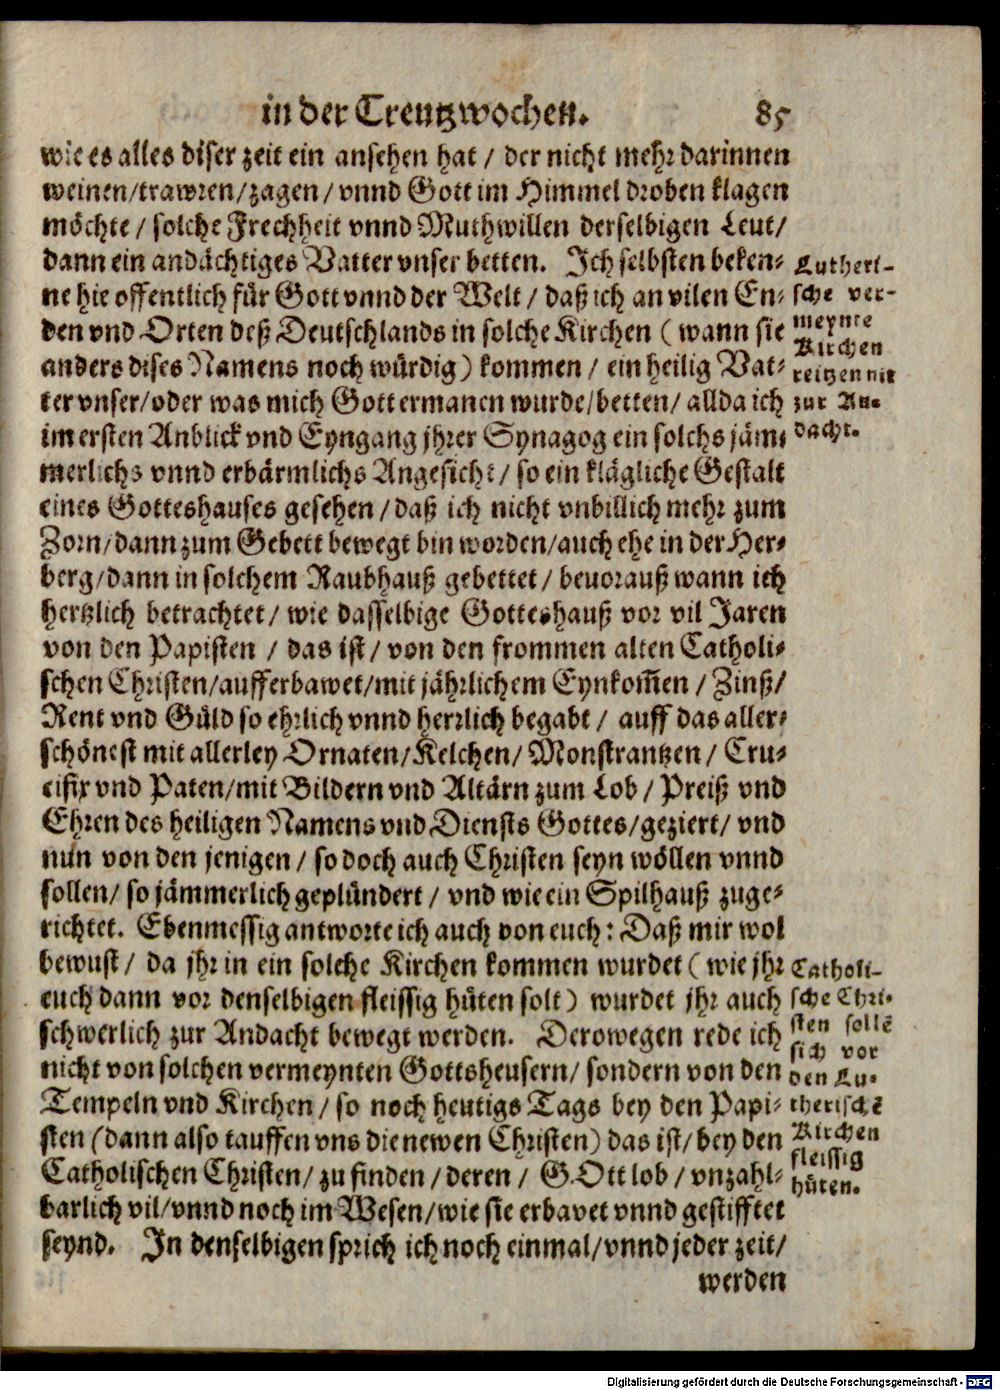 in der Creutzwochen. 85
wie es alles diser zeit ein ansehen hat / der nicht mehr darinnen
weinen/trawren/zagen/vnnd Gott im Himmel droben klagen
möchte / solche Frechheit vnnd Muthwillen derselbigen Leut/
dann ein andächtiges Vatter vnser betten. Ich selbsten beken⸗
ne hie offentlich für Gott vnnd der Welt / daß ich an vilen En⸗
den vnd Orten deß Deutschlands in solche Kirchen (wann sie
anders dises Namens noch würdig) kommen / ein heilig Vat⸗
ter vnser/oder was mich Gott ermanen wurde/betten/ allda ich
im ersten Anblick vnd Eyngang jhrer Synagog ein solchs jäm⸗
merlichs vnnd erbärmlichs Angesicht / so ein klägliche Gestalt
eines Gotteshauses gesehen / daß ich nicht vnbillich mehr zum
Zorn/dann zum Gebett bewegt bin worden/auch ehe in der Her⸗
berg/dann in solchem Raubhauß gebettet / beuorauß wann ich
hertzlich betrachtet / wie dasselbige Gotteshauß vor vil Jaren
von den Papisten / das ist / von den frommen alten Catholi⸗
schen Christen/aufferbawet/mit jährlichem Eynkom̄en / Zinß/
Rent vnd Güld so ehrlich vnnd herrlich begabt / auff das aller⸗
schönest mit allerley Ornaten/Kelchen/ Monstrantzen / Cru⸗
cifix vnd Paten/mit Bildern vnd Altärn zum Lob / Preiß vnd
Ehren des heiligen Namens vnd Diensts Gottes/geziert/ vnd
nun von den jenigen / so doch auch Christen seyn wöllen vnnd
sollen/ so jämmerlich geplündert / vnd wie ein Spilhauß zuge⸗
richtet. Ebenmessig antworte ich auch von euch: Daß mir wol
bewust / da jhr in ein solche Kirchen kommen wurdet (wie jhr
euch dann vor denselbigen fleissig hüten solt) wurdet jhr auch
schwerlich zur Andacht bewegt werden. Derowegen rede ich
nicht von solchen vermeynten Gottsheusern/ sondern von den
Tempeln vnd Kirchen / so noch heutigs Tags bey den Papi⸗
sten (dann also tauffen vns die newen Christen) das ist/ bey den
Catholischen Christen/ zu finden / deren / GOtt lob / vnzahl⸗
barlich vil/vnnd noch im Wesen/wie sie erbavet vnnd gestifftet
seynd. In denselbigen sprich ich noch einmal/vnnd jeder zeit/
werden
Lutheri⸗
sche ver⸗
meynte
Kirchen
reitzen nit
zur An⸗
dacht.
Catholi⸗
sche Chri⸗
sten sollē
sich vor
den Lu⸗
therischē
Kirchen
fleissig
hüten.
Digitalisierung gefördert durch die Deutsche Forschungsgemeinschaft - DFG